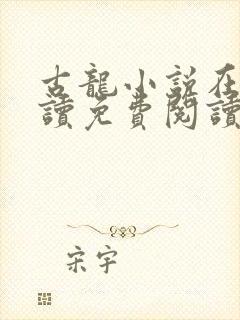 古龍小說在
讀免費閱讀
宋宇